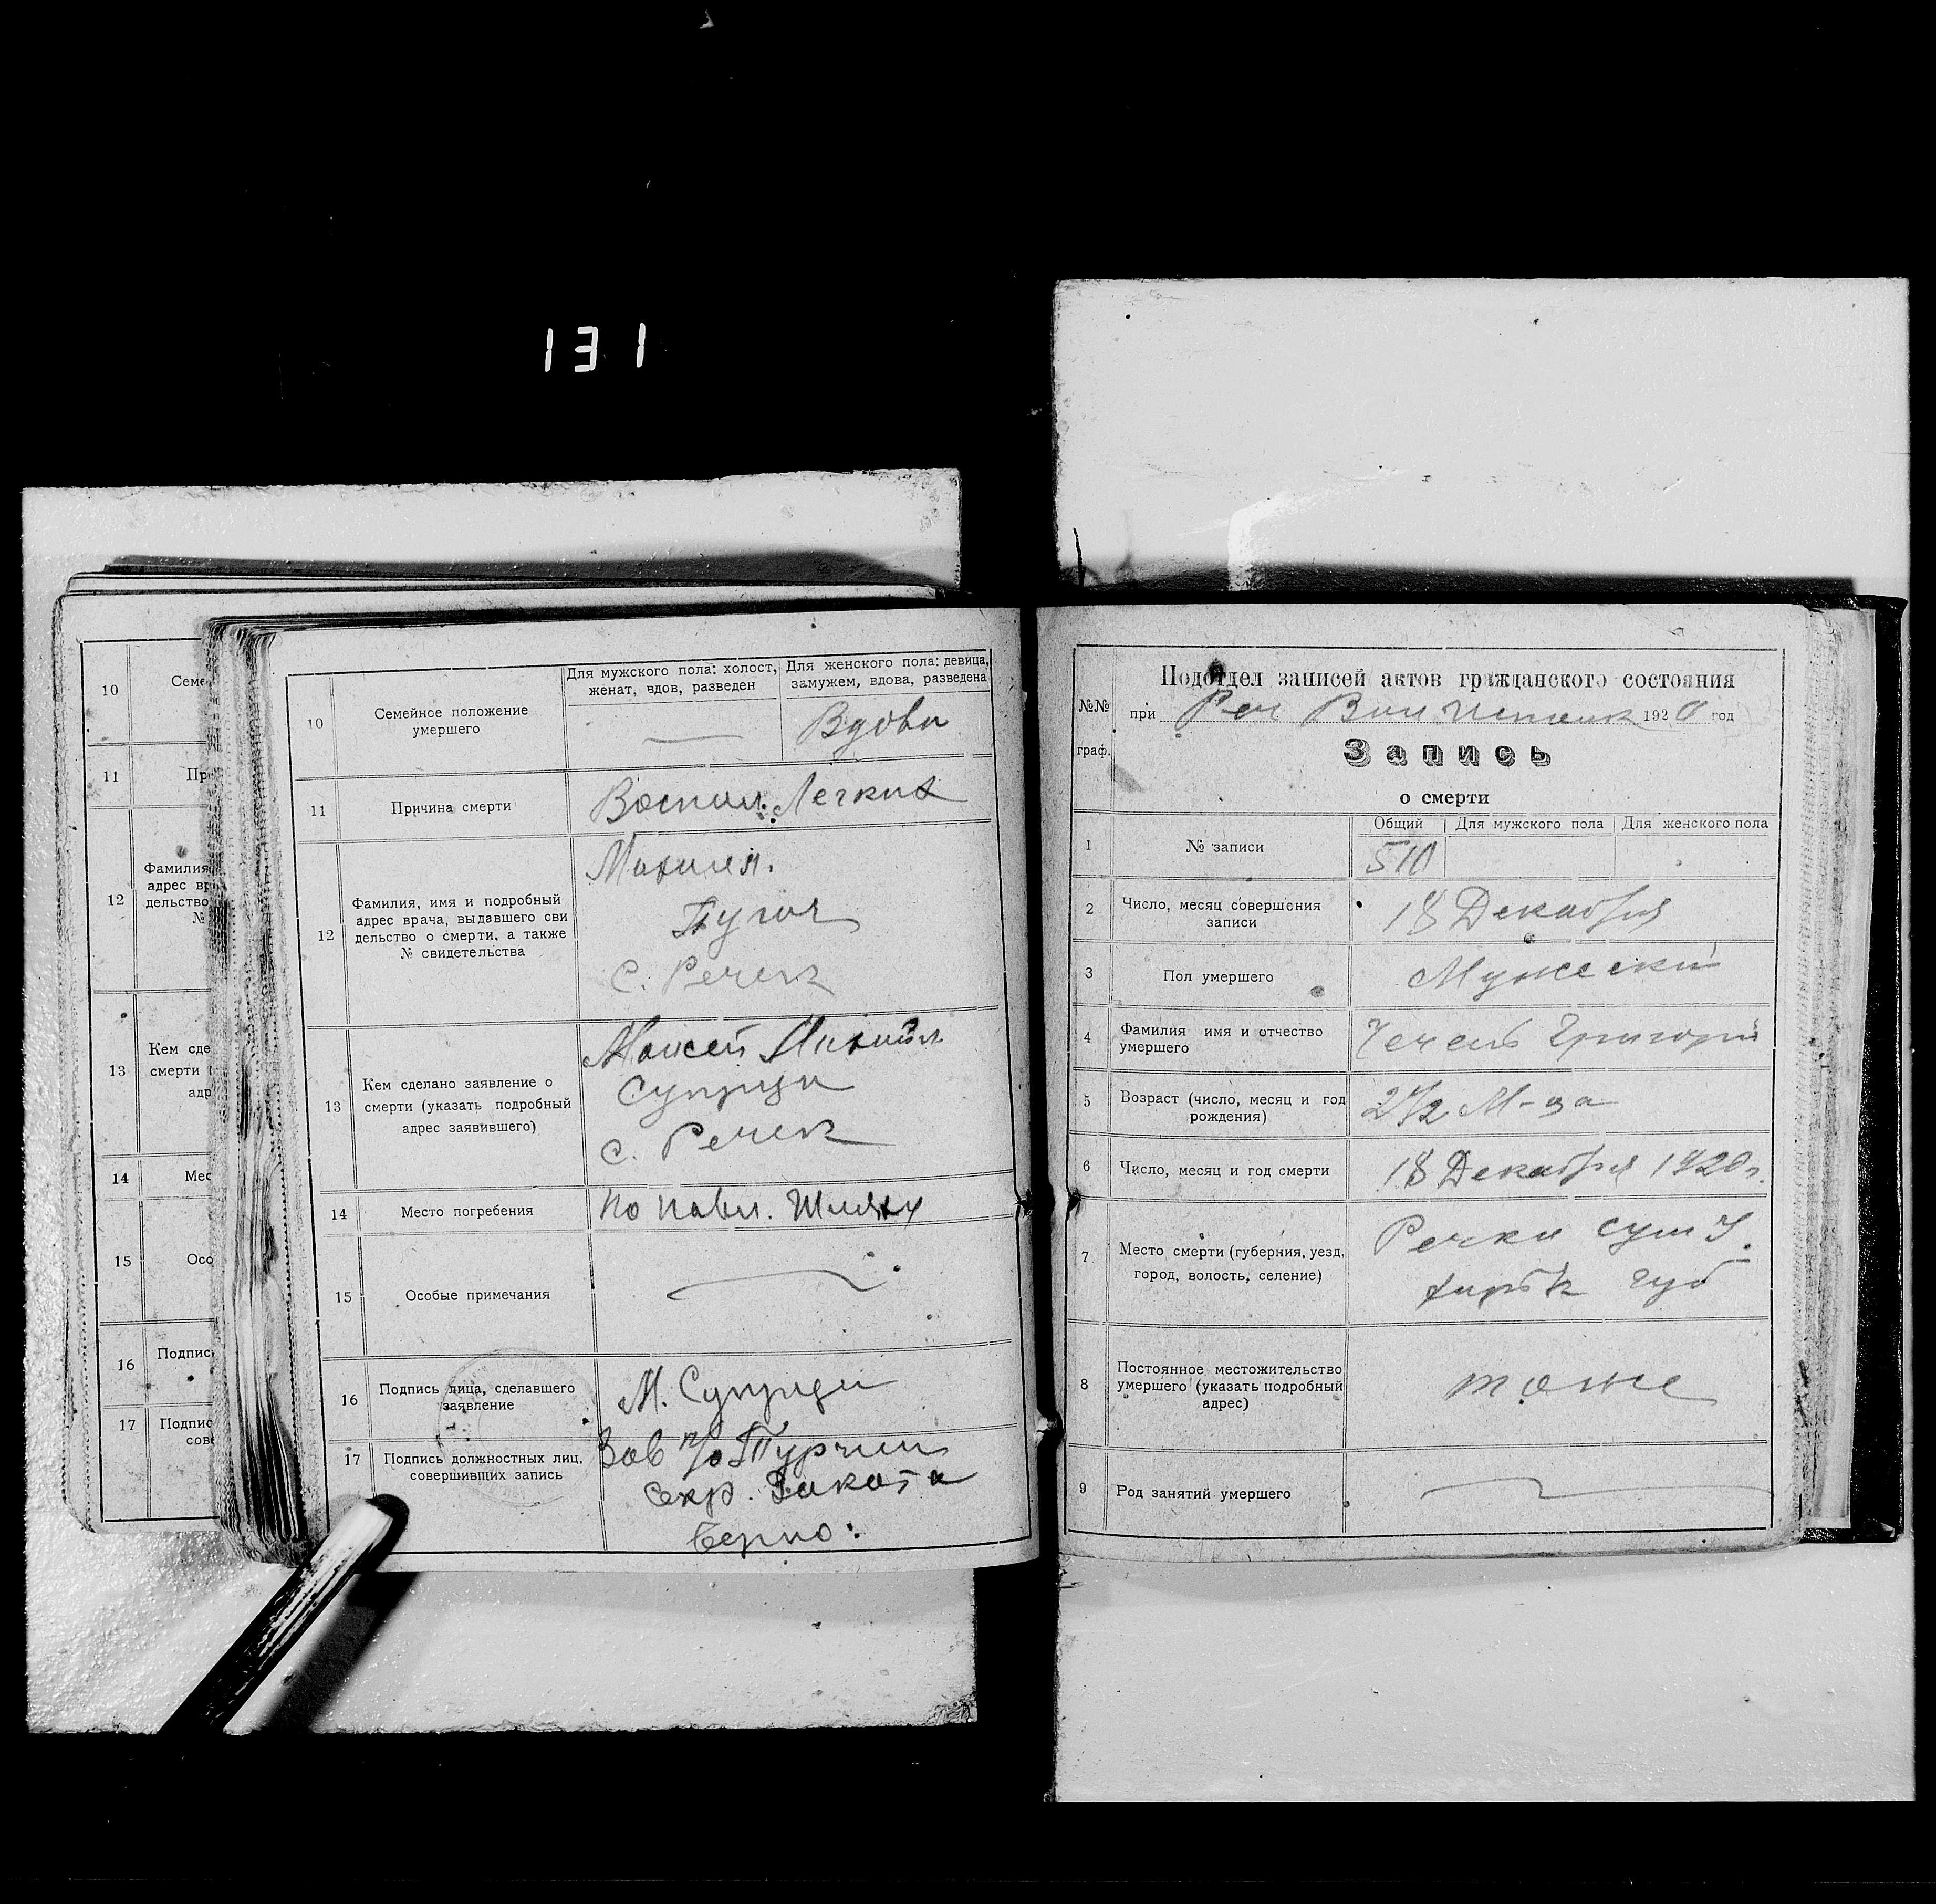 131
10
Семе
11
Пр
12
Фамилия
адрес вр
дельство
№
13
Кем сде
смерти (
адр
14
Мес
15
Осо
16
Подпис
17
Подпис
сове
10
Семейное положение
умершего
Для мужского пола: холост,
женат, вдов, разведен
Для женского пола: девица,
замужем, вдова, разведена
Вдова
11
Причина смерти
Воспал. Легких
12
Фамилия, имя и подробный
адрес врача, выдавшего сви
дельство о смерти, а также
№ свидетельства
с. Речек
13
Кем сделано заявление о
смерти (указать подробный
адрес заявившего)
Моисей Михайл
Супрун
с. Речек
14
Место погребения
по павл. Шляху
15
Особые примечания
16
Подпись лица, сделавшего
заявление
М. Супрун
17
Подпись должностных лиц,
совершивших запись
Зав п/о Турчин
Секр. Заката
Верно:
№№
граф.
Подотдел записей актов гражданского состояния
при Реч Вол 1920 год
Запись
о смерти
1
№ записи
Общий
Для мужского пола
Для женского пола
510
2
Число, месяц совершения
записи
18 Декабря
3
Пол умершего
Мужеский
4
Фамилия имя и отчество
умершего
Чечель Григорий
5
Возраст (число, месяц и год
рождения)
2 1/2 М-ца
6
Число, месяц и год смерти
18 Декабря 1920 г.
7
Место смерти (губерния, уезд,
город, волость, селение)
Речки сум у.
харьк губ
8
Постоянное местожительство
умершего (указать подробный
адрес)
тоже
9
Род занятий умершего